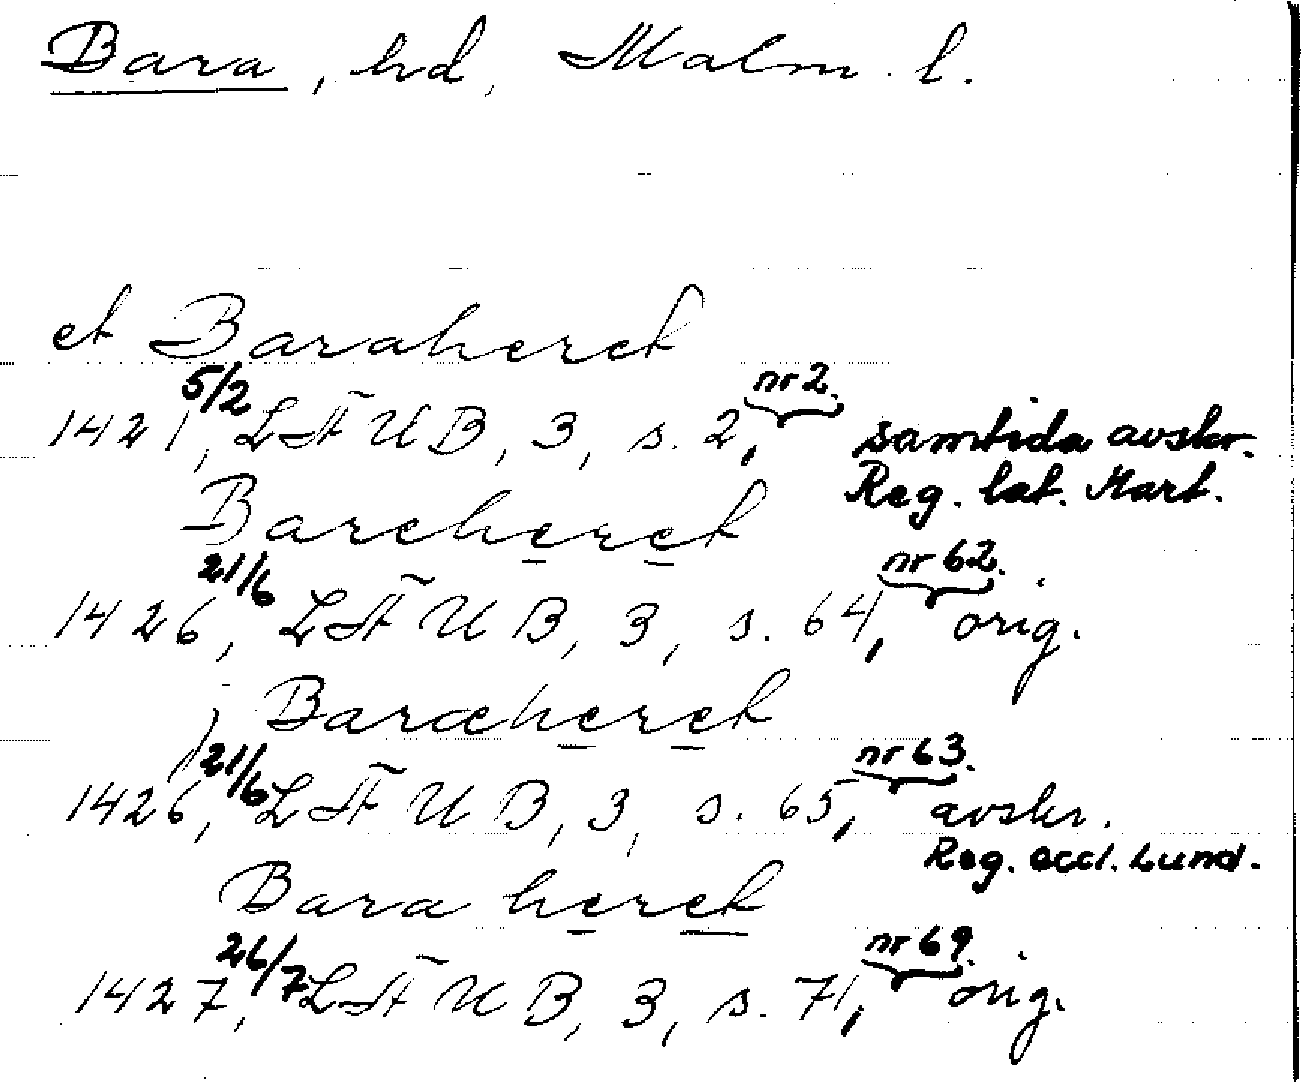 Bara, hd, Malm. l.
et Baraheret
1421 5/2, LÄUB, 3, s. 2, nr 2. samtida avskr.
Reg. lat. Mart.
Bareheret
1426 21/6, LÄUB, 3, s. 64, nr 62. orig.
j Baræheret
1426 21/6, LÄUB, 3, s. 65, nr 63. avskr.
Reg. eccl. Lund.
Bara heret
1427 26/7, LÄUB, 3, s. 71, nr 69. orig.